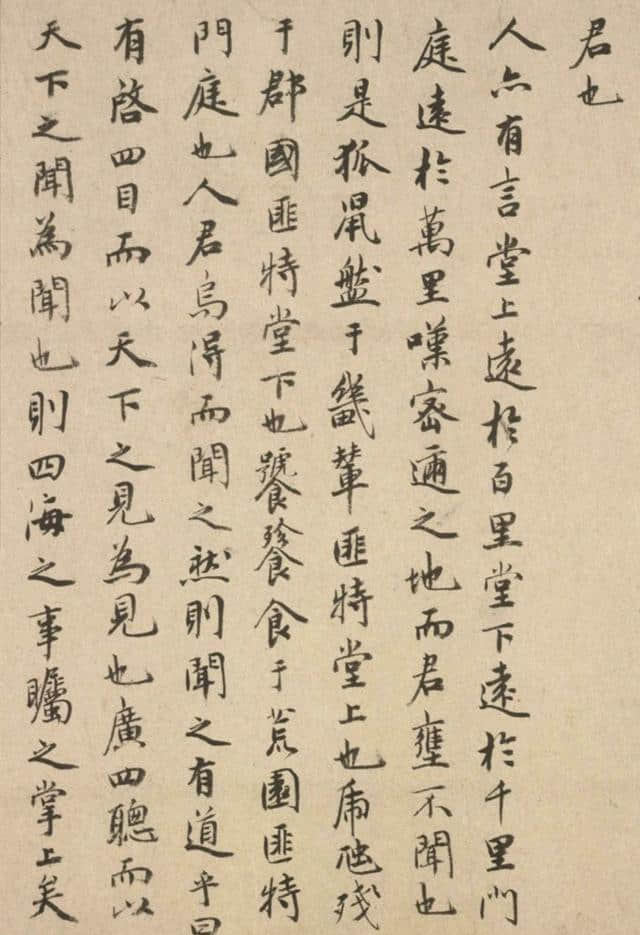 君也
人亦有言堂上遠於百里堂下遠於千里門
庭遠於萬里嘆密邇之地而君壅不聞也
則是狐鼠盤于畿輦匪特堂上也虎虺殘
于郡國匪特堂下也饕餮食于荒園匪特
門庭也人君烏得而聞之然則聞之有道乎曰
有啓四目而以天下之見為見也廣四聰而以
天下之聞為聞也則四海之事矚之掌上矣